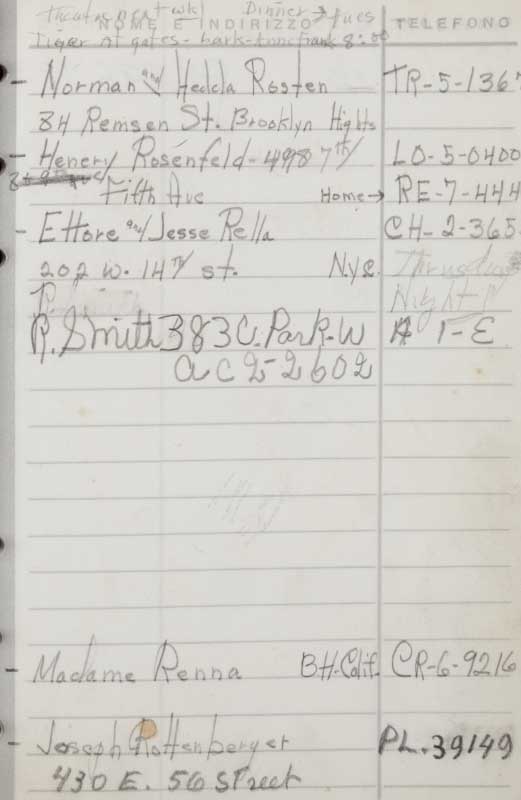 Theatre next wk! Dinner → Tues
NOME E INDIRIZZO TELEFONO
Tiger at gates - bark - Anne Frank 8:00
Norman and Hedda Rosten TR-5-1367
84 Remsen St. Brooklyn Hights
Henery Rosenfeld - 498 7th/ LO-5-0400
Fifth Ave Home → RE-7-444
Ettore and Jesse Rella CH-2-365
202 W. 14th st. N.y.c. Thursday
Night
R. Smith 383 C. Park. W A 1-E
ac 2-2602
Madame Renna BH-Calif. CR-6-9216
Joseph Rottenberger PL.39149
430 E. 56 Street